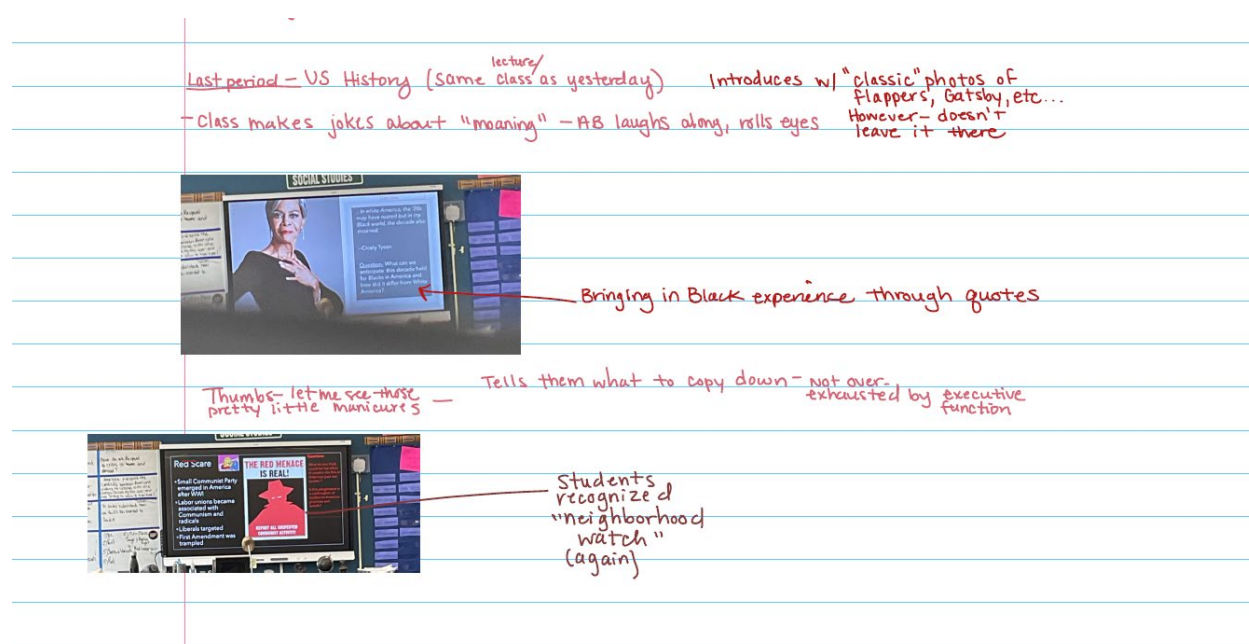 lecture/
Last period – US History (same class as yesterday)
Introduces w/ "classic" photos of
flappers, Gatsby, etc...
However – doesn't
leave it there
- Class makes jokes about "moaning" – AB laughs along, rolls eyes
SOCIAL STUDIES
In white America, the '20s
may have roared but in my
Black world, the decade also
mourned.
–Cicely Tyson
Question: What can we
anticipate this decade held
for Blacks in America and
how did it differ from White
America?
Bringing in Black experience through quotes
Thumbs – let me see those
pretty little manicures –
Tells them what to copy down – not over-
exhausted by executive
function
SOCIAL STUDIES
Red Scare
•Small Communist Party
emerged in America
after WWI
•Labor unions became
associated with
Communism and
radicals
•Liberals targeted
•First Amendment was
trampled
THE RED MENACE
IS REAL!
REPORT ALL SUSPECTED
COMMUNIST ACTIVITY!
Students
recognized
"neighborhood
watch"
(again)